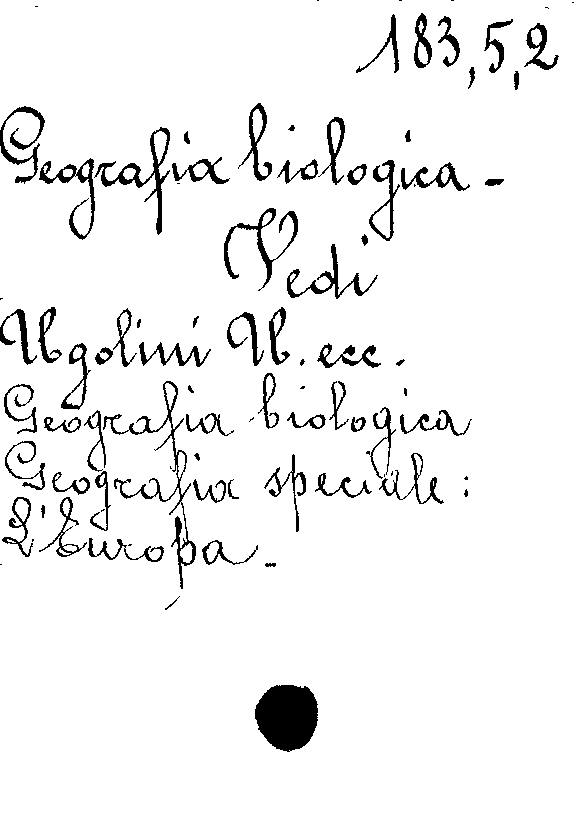 183,5,2
Geografia biologica -
Vedi
Ugolini U. ecc.
Geografia biologica
Geografia speciale:
L'Europa.